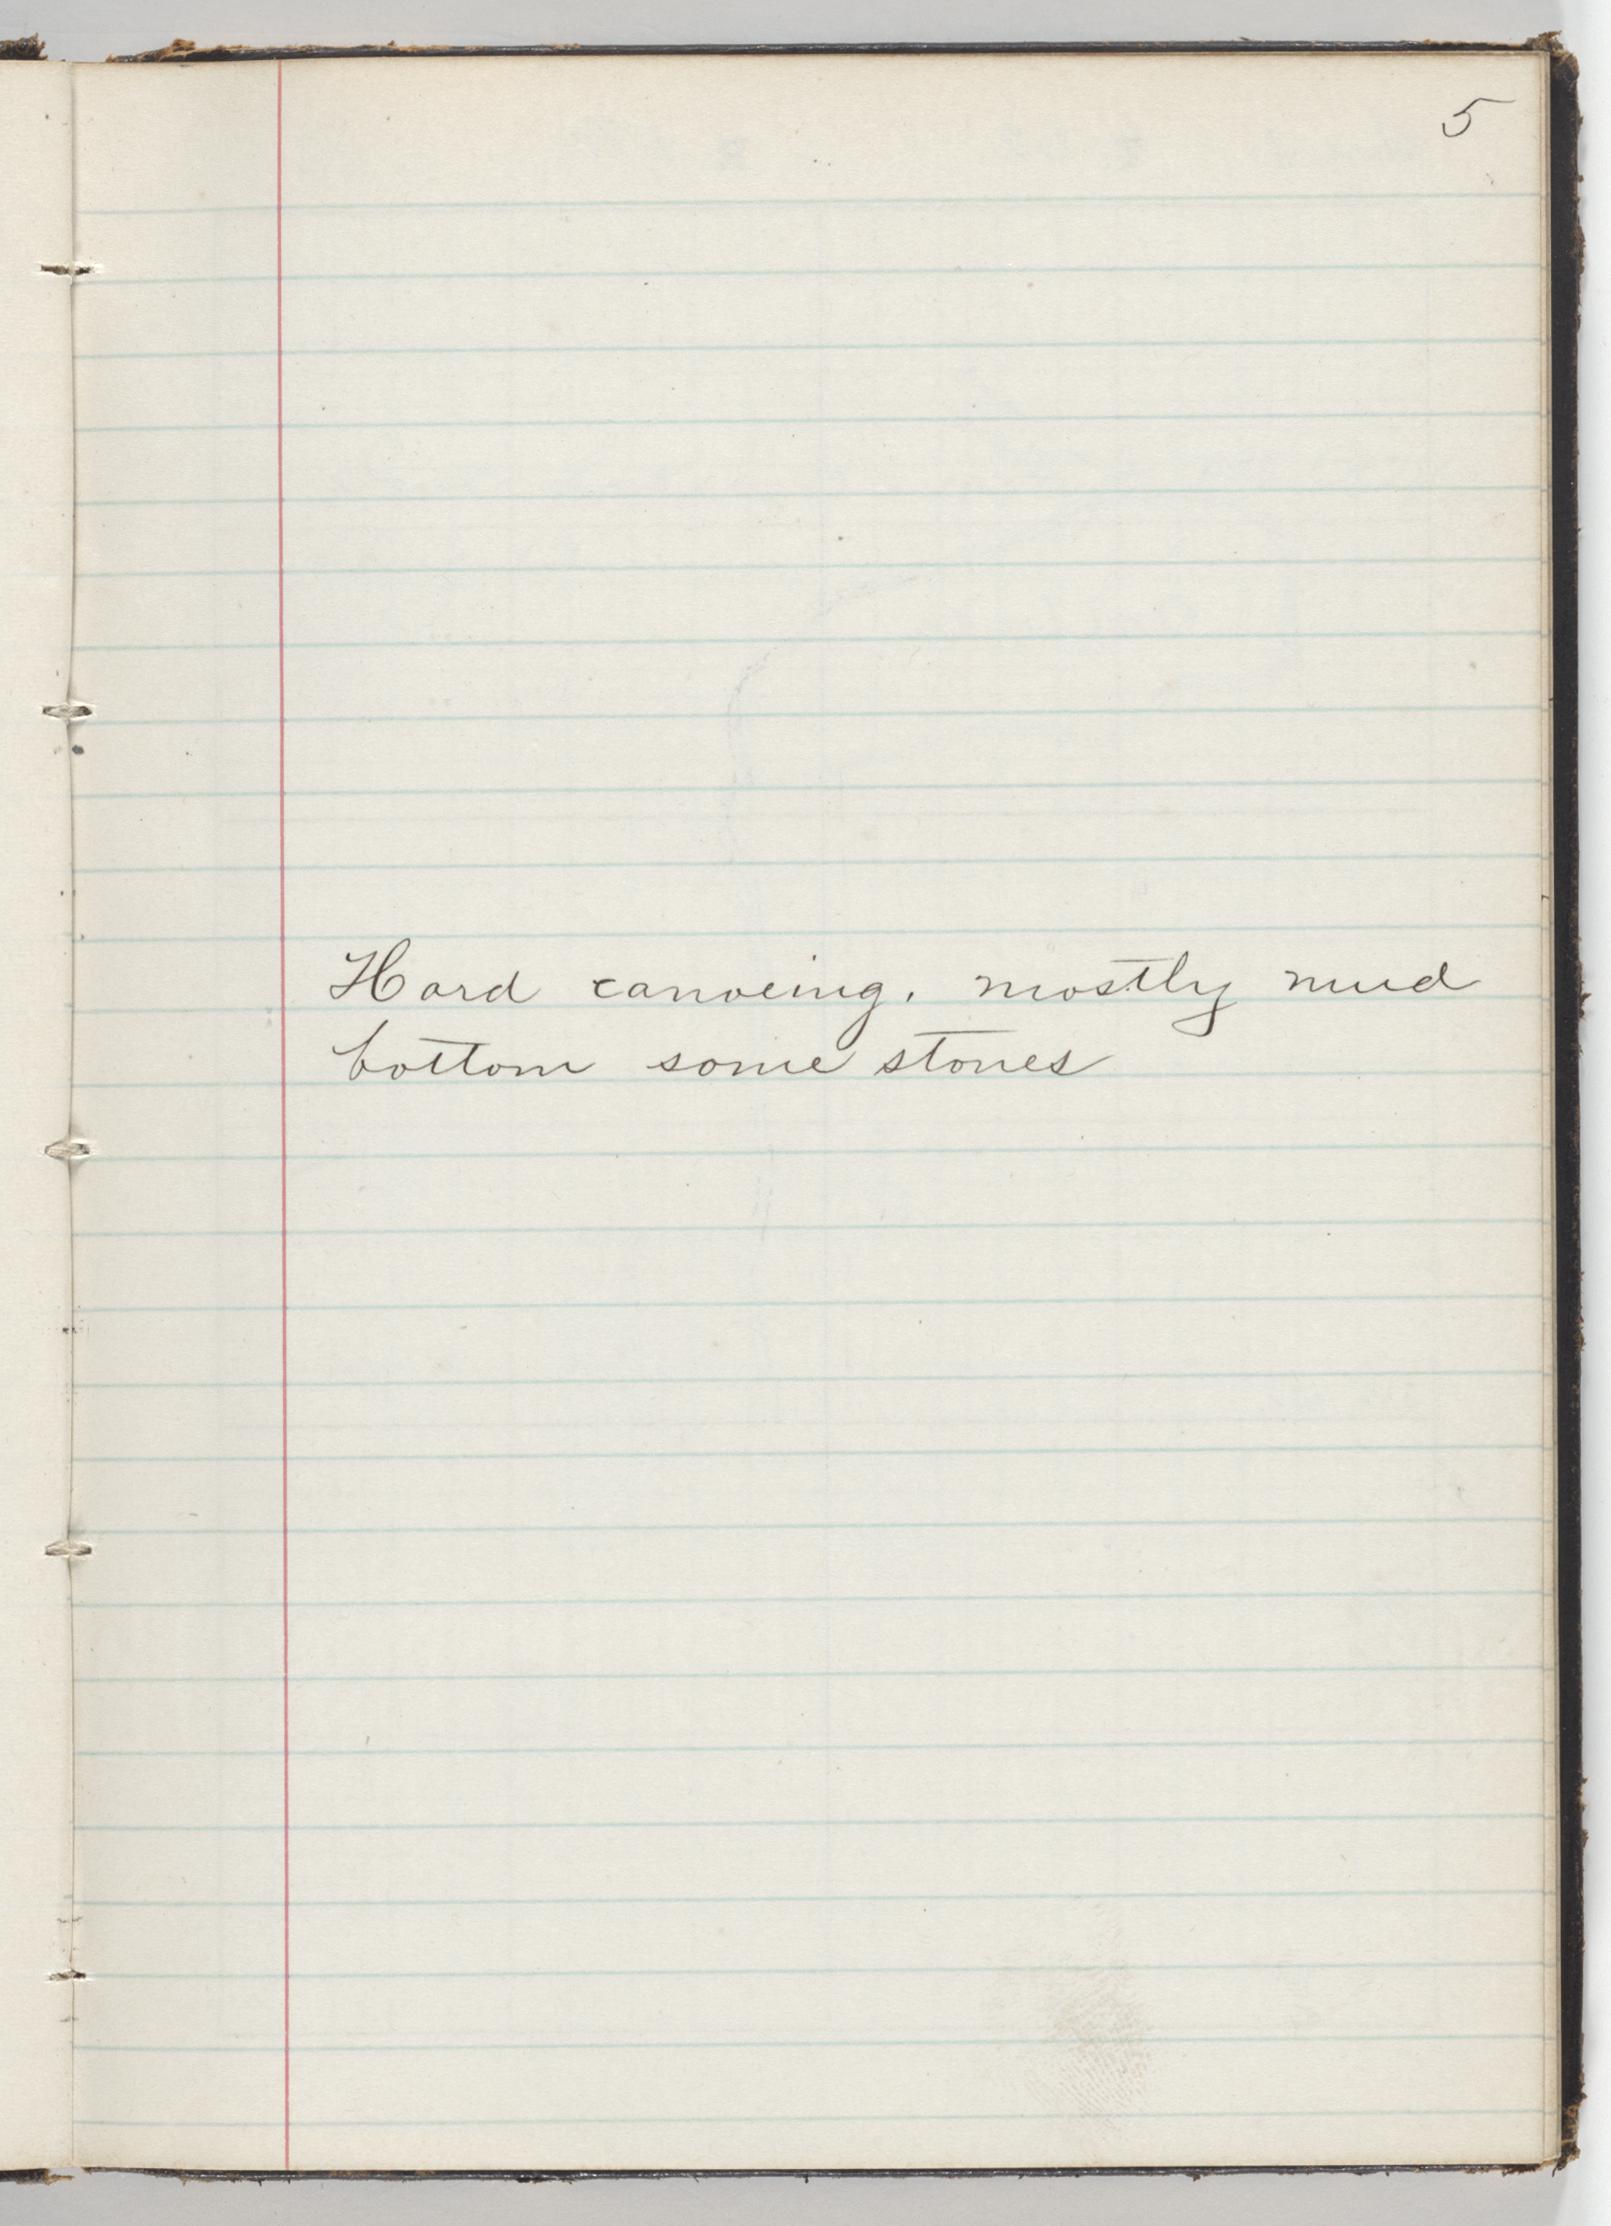 5
Hard canoeing, mostly mud
bottom some stones